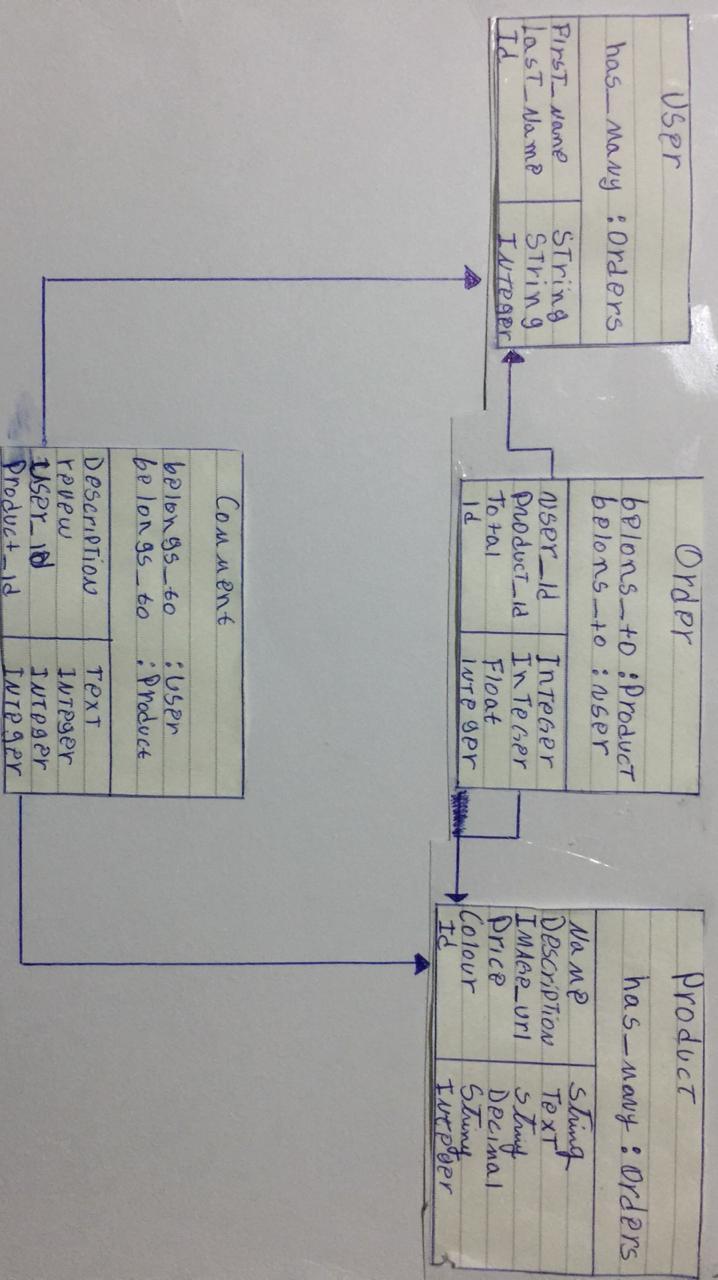 User
has_many :Orders
First_Name String
Last_Name String
Id Integer
Order
belons_to :Product
belons_to :user
user_Id Integer
Product_Id Integer
Total Float
Id Integer
Product
has_many :Orders
Name String
Description Text
Image_url String
Price Decimal
Colour String
Id Integer
Comment
belongs_to :User
belongs_to :Product
Description Text
revew Integer
User_id Integer
Product_id Integer